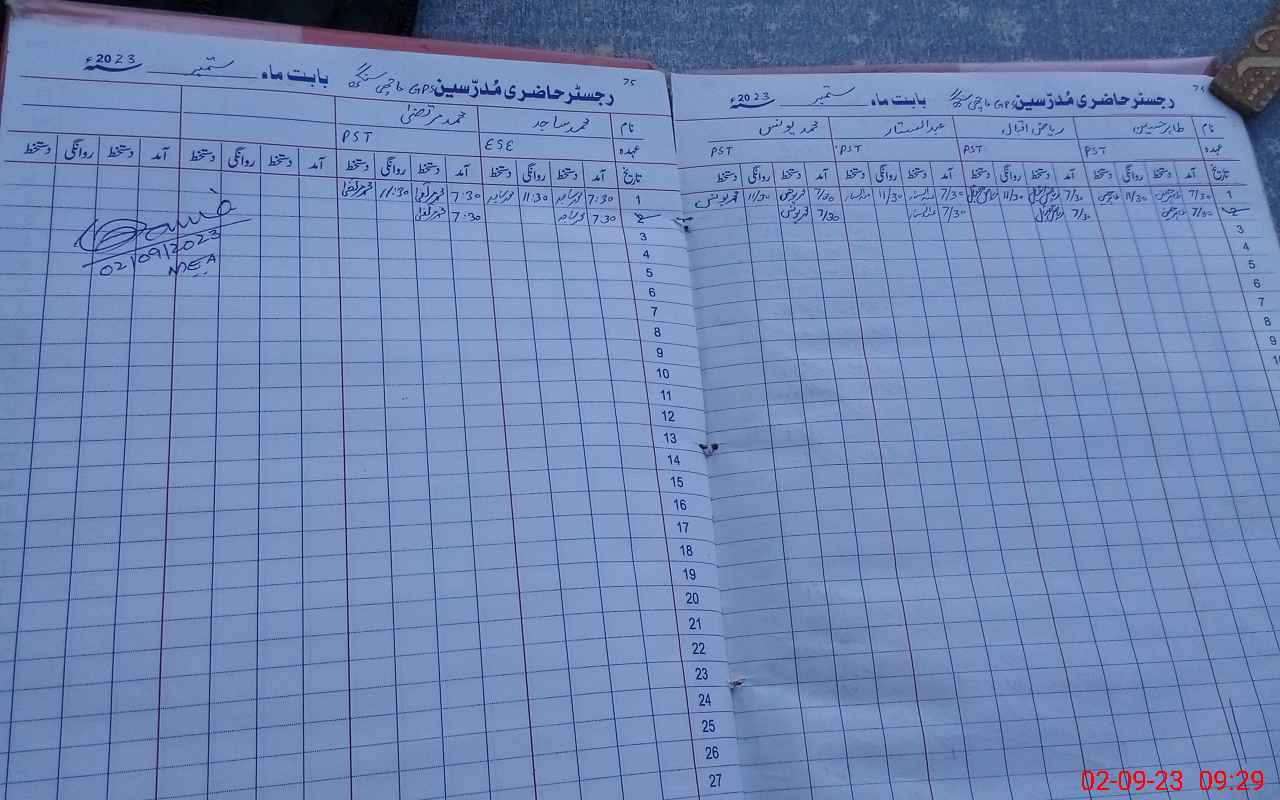 رجسٹر حاضری مُدرّسین GPS ماچھی سنگھ بابت ماہ ستمبر 2023ء
75
نام طاہر حسین ریاض اقبال عبدالستار محمد یونس
عہدہ PST PST PST PST
تاریخ آمد دستخط روانگی دستخط آمد دستخط روانگی دستخط آمد دستخط روانگی دستخط آمد دستخط روانگی دستخط
1 7/30 11/30 7/30 11/30 7/30 11/30 7/30 11/30 محمد یونس
2 7/30 7/30 7/30 7/30 محمد یونس
3
4
5
6
7
8
9
10
رجسٹر حاضری مُدرّسین GPS ماچھی سنگھ بابت ماہ ستمبر 2023ء
75
نام محمد ساجد محمد مرتضیٰ
عہدہ ESE PST
تاریخ آمد دستخط روانگی دستخط آمد دستخط روانگی دستخط آمد دستخط روانگی دستخط آمد دستخط روانگی دستخط
1 7:30 محمد ساجد 11:30 محمد ساجد 7:30 محمد مرتضیٰ 11:30 محمد مرتضیٰ
2 7:30 محمد ساجد 7:30 محمد مرتضیٰ
3
4
5
6
7
8
9
10
11
12
13
14
15
16
17
18
19
20
21
22
23
24
25
26
27
02/09/2023
MEA
02-09-23 09:29